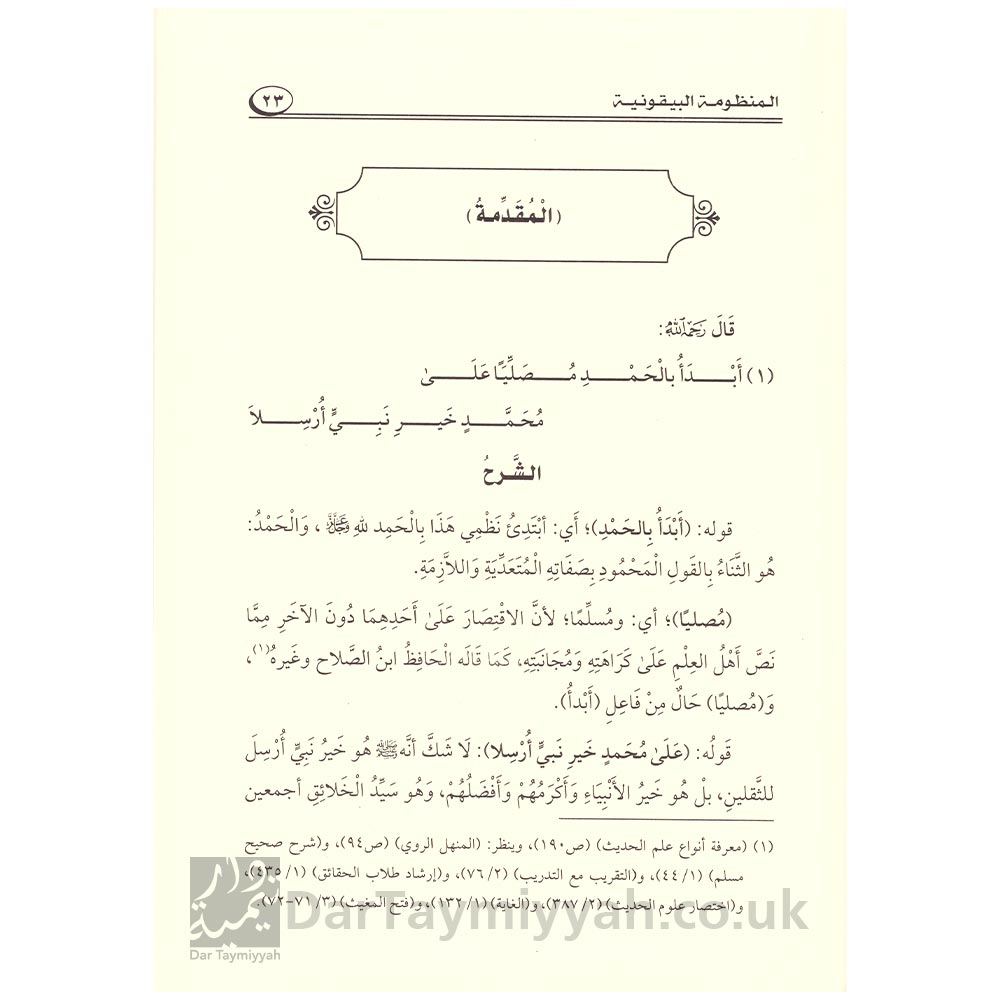 المنظومة البيقونية
٢٣
(الْمُقَدِّمةُ)
قَالَ رَحِمَهُ اللهُ:
(١) أَبْـدَأُ بالْحَمْـدِ مُـصَلِّيًا عَلَـى
مُحَمَّـدٍ خَيـرِ نَبِـيٍّ أُرْسِـلاَ
الشَّرحُ
قوله: (أَبْدَأُ بِالحَمْدِ)؛ أَي: أبْتَدِئُ نَظْمِي هَذَا بِالْحَمِد للهِ عَزَّ وَجَلَّ، وَالْحَمْدُ:
هُو الثَّنَاءُ بِالقَولِ الْمَحْمُودِ بِصَفَاتِهِ الْمُتَعَدِّيَةِ وَاللاَّزِمَةِ.
(مُصليًا)؛ أي: ومُسلِّمًا؛ لأنَّ الاقْتِصَارَ عَلَىٰ أَحَدِهِمَا دُونَ الآخَرِ مِمَّا
نَصَّ أَهْلُ العِلْمِ عَلَىٰ كَرَاهَتِهِ وَمُجَانَبَتِهِ، كَمَا قَالَه الْحَافِظُ ابنُ الصَّلاح وغَيرهُ(١)،
وَ(مُصليًا) حَالٌ مِنْ فَاعِلِ (أَبْدأُ).
قَولُه: (عَلَىٰ مُحَمدٍ خَيرِ نَبيٍّ أُرْسِلا): لَا شَكَّ أنَّه ﷺ هُو خَيرُ نَبِيٍّ أُرْسِلَ
للثَّقلينِ، بلْ هُو خَيرُ الأَنْبِيَاءِ وَأَكْرَمُهُمْ وَأَفْضَلُهُمْ، وَهُو سَيِّدُ الْخَلائِقِ أجمعين
(١) (معرفة أنواع علم الحديث) (ص١٩٠)، وينظر: (المنهل الروي) (ص٩٤)، و(شرح صحيح
مسلم) (١/ ٤٤)، و(التقريب مع التدريب) (٢/ ٧٦)، و(إرشاد طلاب الحقائق) (١/ ٤٣٥)،
و(اختصار علوم الحديث) (٢/ ٣٨٧)، و(الغاية) (١/ ١٣٢)، و(فتح المغيث) (٣/ ٧١-٧٢).
دار تيمية
Dar Taymiyyah
DarTaymiyyah.co.uk